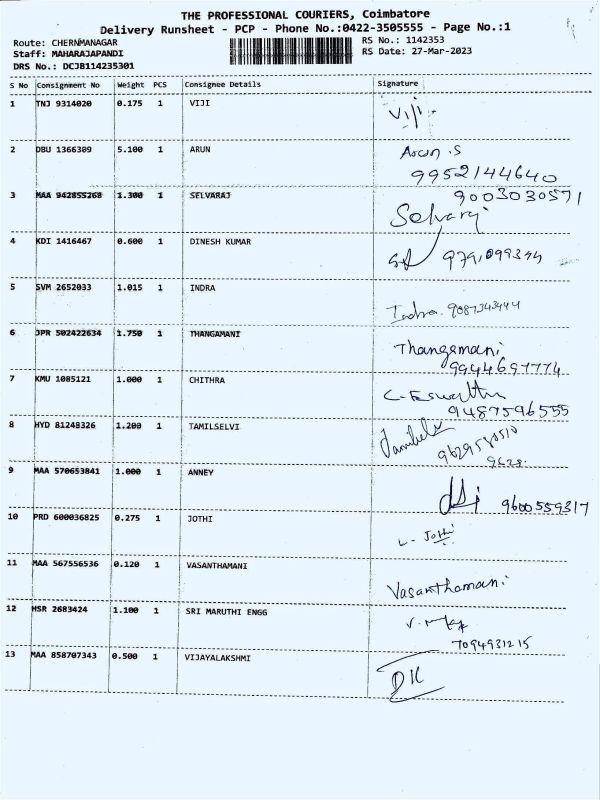 THE PROFESSIONAL COURIERS, Coimbatore
Delivery Runsheet - PCP - Phone No.:0422-3505555 - Page No.:1
Route: CHERNMANAGAR
Staff: MAHARAJAPANDI
DRS No.: DCJB114235301
RS No.: 1142353
RS Date: 27-Mar-2023
S No Consignment No Weight PCS Consignee Details Signature
1 TNJ 9314020 0.175 1 VIJI Viji
2 DBU 1366309 5.100 1 ARUN Arun .S
9952144640
3 MAA 942855268 1.300 1 SELVARAJ 9003030571
Selvaraj
4 KDI 1416467 0.600 1 DINESH KUMAR
5 SVM 2652033 1.015 1 INDRA Indra.
6 JPR 502422634 1.750 1 THANGAMANI Thangamani
9944697774
7 KMU 1085121 1.000 1 CHITHRA
9487596555
8 HYD 81248326 1.200 1 TAMILSELVI
9 MAA 570653841 1.000 1 ANNEY
9600559317
10 PRD 600036825 0.275 1 JOTHI L- Jothi
11 MAA 567556536 0.120 1 VASANTHAMANI Vasanthamani
12 HSR 2683424 1.100 1 SRI MARUTHI ENGG
7094931215
13 MAA 858707343 0.500 1 VIJAYALAKSHMI DK